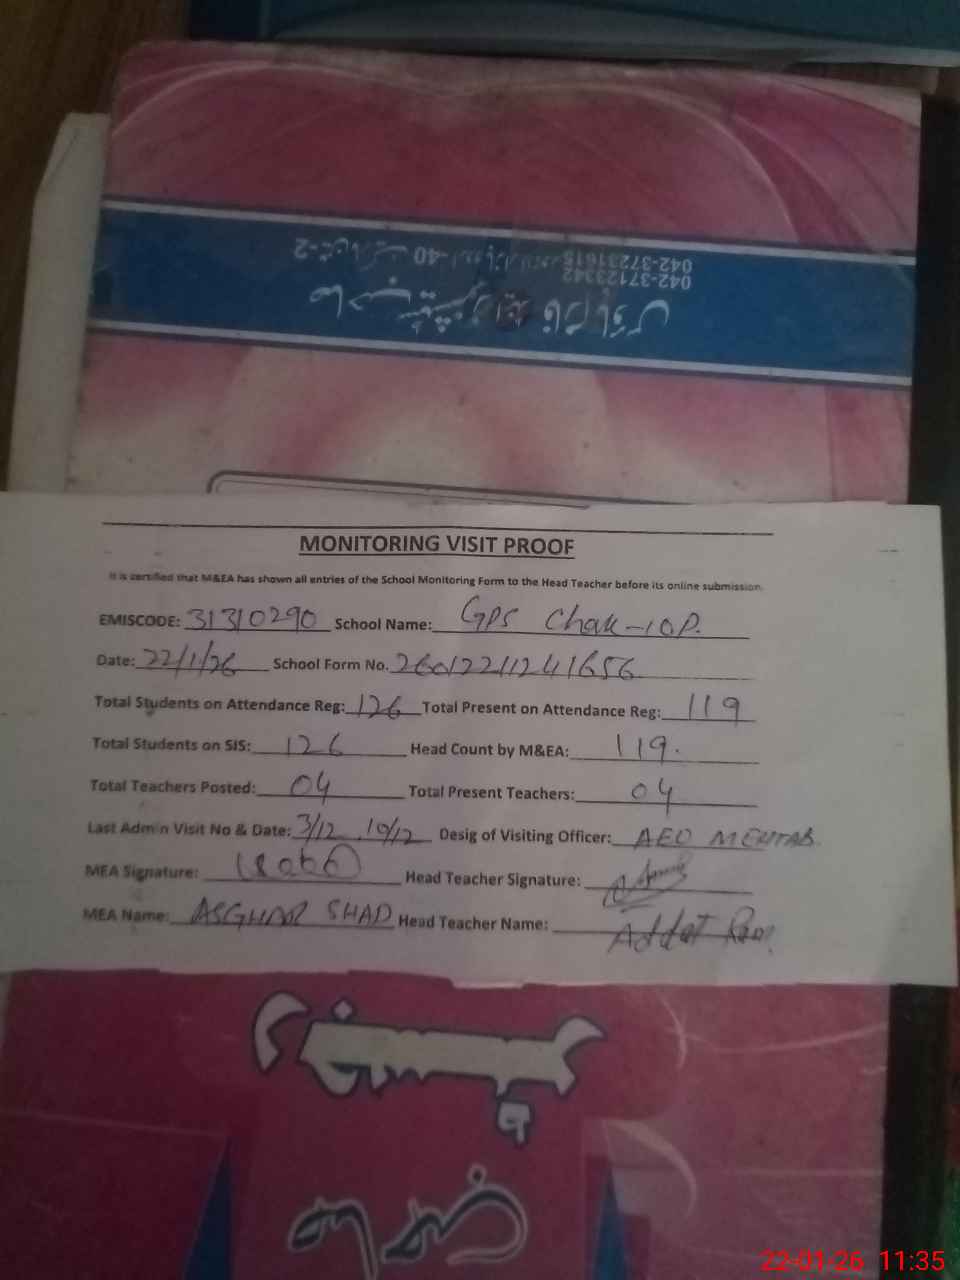 042-37231615
042-37123342
MONITORING VISIT PROOF
It is certified that M&EA has shown all entries of the School Monitoring Form to the Head Teacher before its online submission.
EMISCODE: 31310290 School Name: GPS Chak-10P.
Date: 22/1/26 School Form No. 26012211241656
Total Students on Attendance Reg: 126 Total Present on Attendance Reg: 119
Total Students on SIS: 126 Head Count by M&EA: 119.
Total Teachers Posted: 04 Total Present Teachers: 04
Last Admin Visit No & Date: 3/12 10/12 Desig of Visiting Officer: AEO MEHTAB.
MEA Signature: Head Teacher Signature:
MEA Name: ASGHAR SHAD Head Teacher Name:
22-01-26 11:35